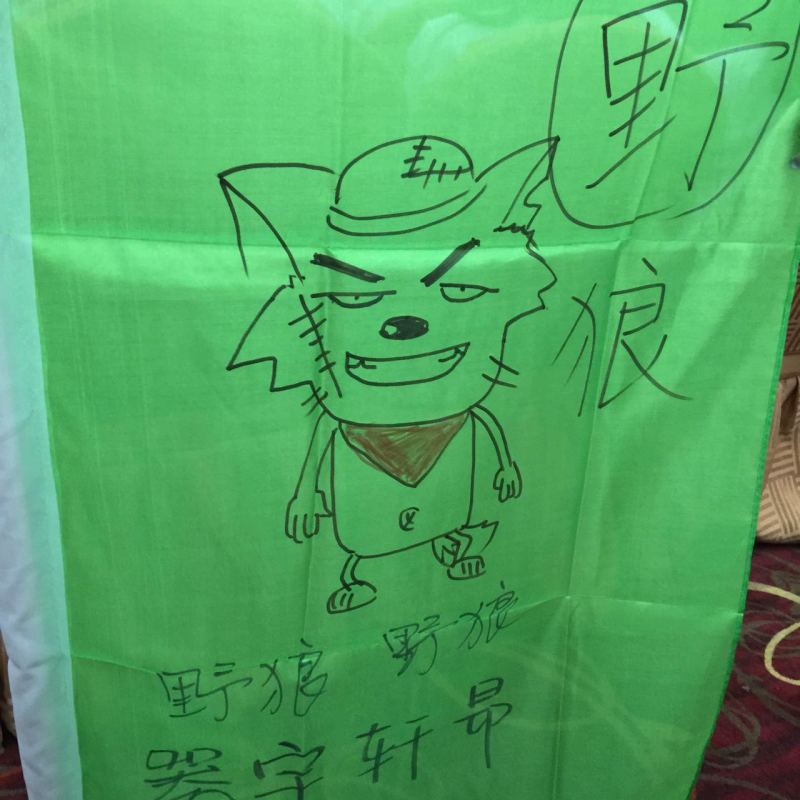 野
狼
野狼 野狼
器宇轩昂